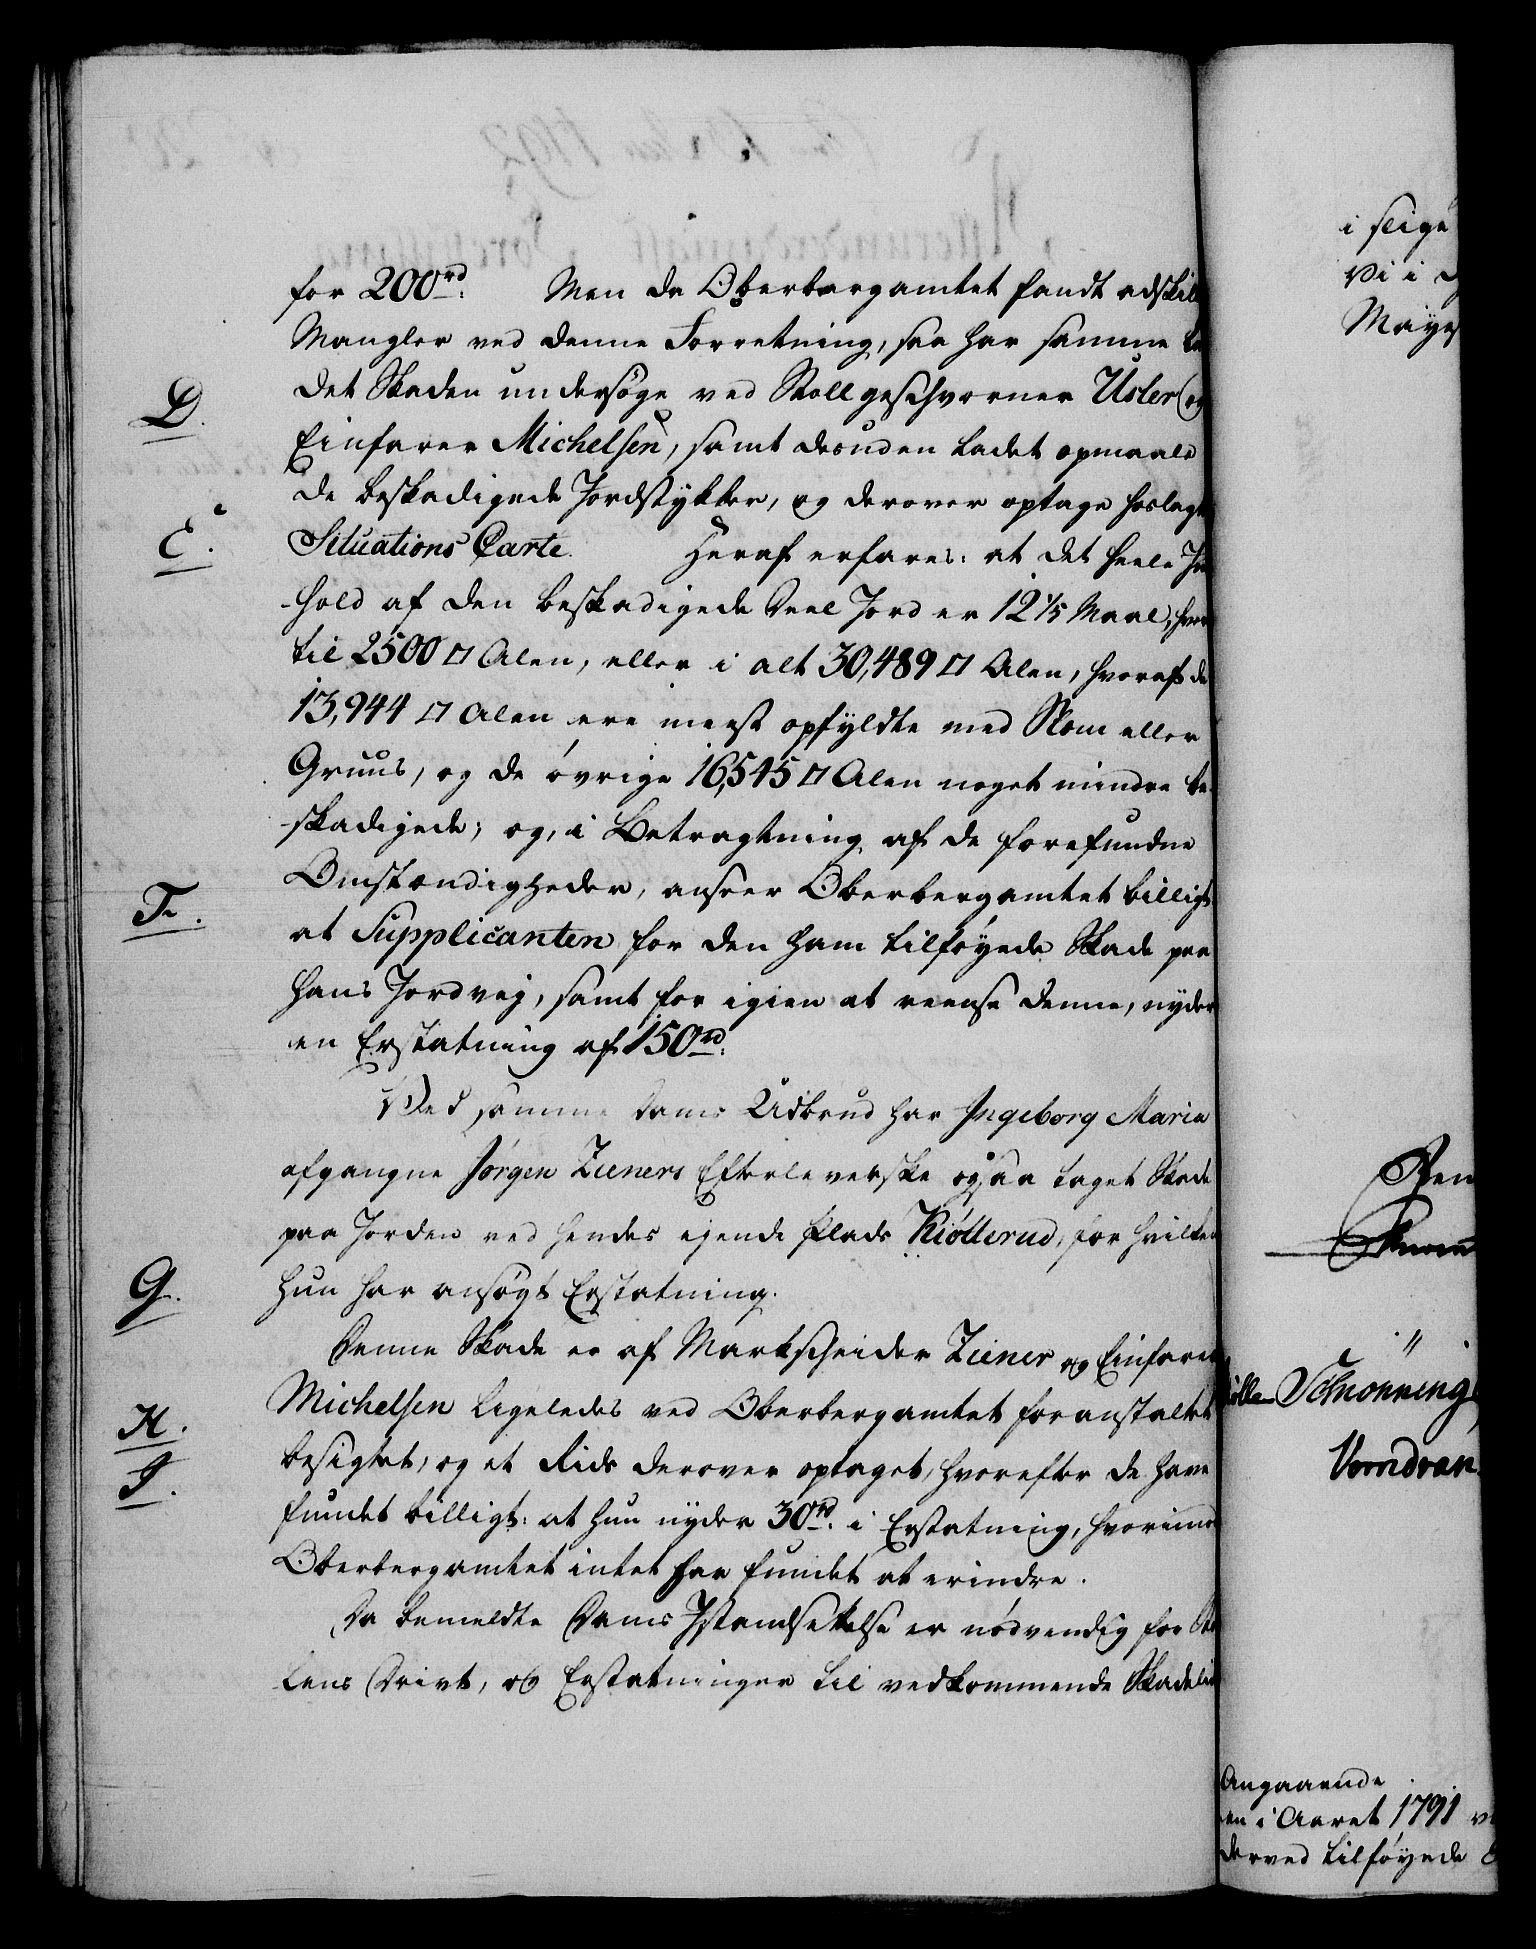 for 200 rd. Men da Oberbergamtet fandt adskil
Mangler ved denne Forretning, saa har samme la
D.
det Skaden undersøge ved Stollgeschworner Usler og
Einfarer Michelsen, samt desuden ladet opmaale
de beskadigede Jordstykker, og derover optage hoslagt
E.
Situations Carte. Heraf erfares: at det heele In
hold af den beskadigede Deel Jord er 12 1/5 Maal, hver
til 2500 □ Alen, eller i alt 30,489 □ Alen, hvoraf de
13,944 □ Alen ere meest opfyldte med Steen eller
Gruus, og de øvrige 16,545 □ Alen noget mindre be-
skadigede; og, i Betragtning af de forefundne
F.
Omstændigheder, anseer Oberbergamtet billigt
at Supplicanten for den ham tilføyede Skade paa
hans Jordvej, samt for igien at reense denne, nyder
en Erstatning af 150 rd.
Ved samme Dams Udbrud har Ingeborg Maria
afgangne Jørgen Zieners Efterleverske ogsaa taget Skade
paa Jorden ved hendes ejende Plads Kiøllerud, for hvilken
G.
hun har ansøgt Erstatning.
Denne Skade er af Markscheider Ziener og Einfarer
H.
Michelsen ligeledes ved Oberbergamtet foranstaltet
I.
besigtet, og et Rids derover optaget, hvorefter de have
fundet billigt: at hun nyder 30 rd. i Erstatning, hvorimod
Oberbergamtet intet har fundet at erindre.
Da bemeldte Dams Istandsættelse er nødvendig for
lens Drivt, og Erstatninger til vedkommende Skadelid
i
Vi i
Mayes
Schiønning
Angaaende
i Aaret 1791
derved tilføyede